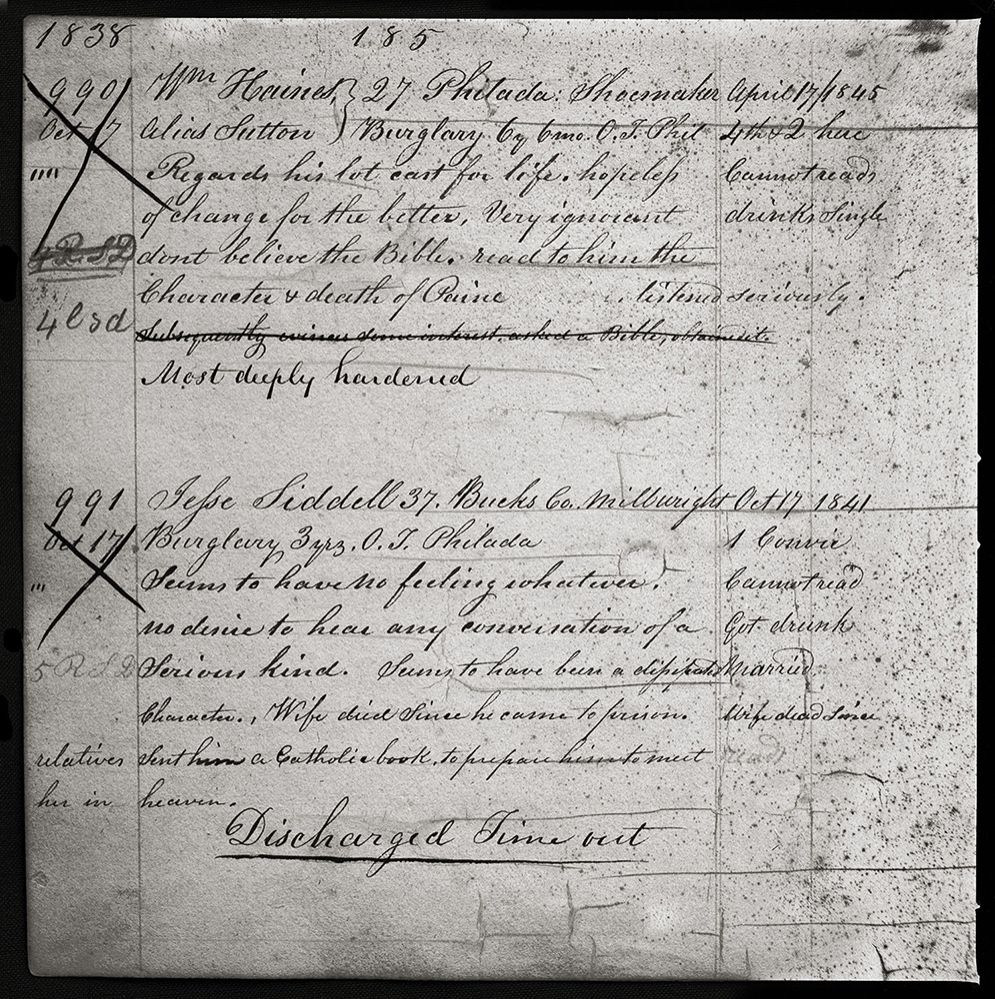 1838 185
990 Wm Haines, } 27 Philada: Shoemaker April 17/1845
Oct 17 alias Sutton } Burglary 6y 6mo. O.T. Phil 4th & 2 here
"" Regards his lot cast for life. hopeless Cannot read
of change for the better, Very ignorant drinks Single
dont believe the Bible. read to him the
Character & death of Paine listened seriously.
4
Subsequently evinces some interest, asked a Bible, obtained it.
Most deeply hardened
991 Jesse Siddell 37. Bucks Co. Millwright Oct 17 1841
Oct 17 Burglary 3yrs. O.T. Philada 1 Convic
"' Seems to have no feeling whatever. Cannot read
no desire to hear any conversation of a Got drunk
5 R S D Serious kind. Seems to have been a disipated Married
Character., Wife died Since he came to prison. Wife dead Since
relatives Sent him a Catholic book, to prepare him to meet reads
her in heaven.
Discharged Time out